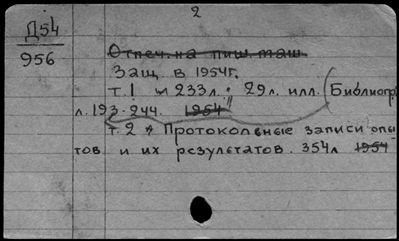 2
Д54
956
Отпеч. на пиш. маш.
Защ в 1954г.
т. 1 233л. 29л. илл. (Библиогр
л. 193-244. 1954
т. 2 Протокольные записи опы
тов и их результатов. 354л 1954